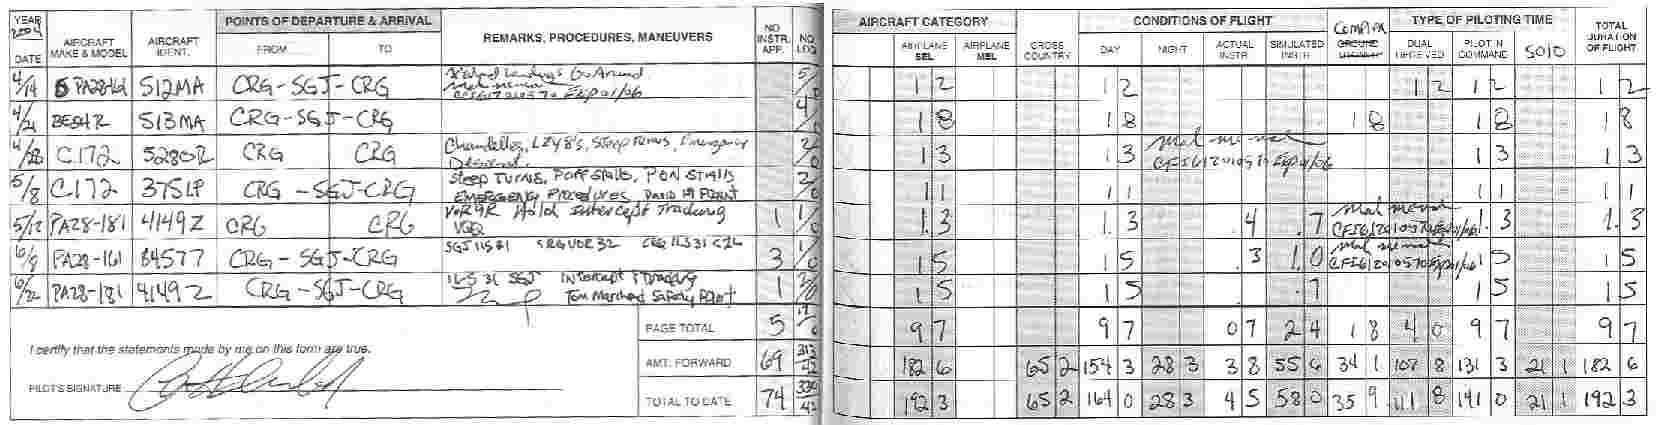 YEAR 2004 POINTS OF DEPARTURE & ARRIVAL NO INSTR. APP. NO LDG AIRCRAFT CATEGORY CONDITIONS OF FLIGHT COMPLEX TYPE OF PILOTING TIME TOTAL DURATION OF FLIGHT
DATE AIRCRAFT MAKE & MODEL AIRCRAFT IDENT. FROM TO REMARKS, PROCEDURES, MANEUVERS AIRPLANE SEL AIRPLANE MEL CROSS COUNTRY DAY NIGHT ACTUAL INSTR SIMULATED INSTR GROUND DUAL RECEIVED PILOT IN COMMAND SOLO
4/14 PA28-161 512MA CRG-SGJ-CRG Landings Go Around 5/0 1 2 1 2 1 2 1 2 1 2
CFI 612010570 Exp 01/06
4/21 BE24R 513MA CRG-SGJ-CRG 4/0 1 8 1 8 1 8 1 8 1 8
4/28 C172 5280R CRG CRG Chandelles, LZY 8's, Steep Turns, Emergency 2/0 1 3 1 3 1 3 1 3
Descent. CFI 612010570 Exp 01/06
5/8 C172 375LP CRG-SGJ-CRG Steep TURNS, POFF Stalls, P ON Stalls 2/0 1 1 1 1 1 1 1 1
EMERGENCY Procedures
5/12 PA28-181 4149Z CRG CRG VOR 4R Hold intercept Tracking 1 1/0 1.3 1.3 .4 .7 1.3 1.3
VQQ CFI 612010570 Exp 01/06
6/8 PA28-161 84577 CRG-SGJ-CRG SGJ ILS 31 CRG VOR 32 CRG ILS 31 3 1/0 1 5 1 5 .3 1.0 CFI 612010570 Exp 01/06 1 5 1 5
6/22 PA28-181 4149Z CRG-SGJ-CRG ILS 31 SGJ Intercept & Tracking 1 2/0 1 5 1 5 .7 1 5 1 5
Tom Marchand Safety Pilot
PAGE TOTAL 5 17/0 9 7 9 7 0 7 2 4 1 8 4 0 9 7 9 7
I certify that the statements made by me on this form are true.
AMT. FORWARD 69 313/42 182 6 65 2 154 3 28 3 3 8 55 6 34 1 107 8 131 3 21 1 182 6
PILOT'S SIGNATURE
TOTAL TO DATE 74 330/42 192 3 65 2 164 0 28 3 4 5 58 0 35 9 111 8 141 0 21 1 192 3